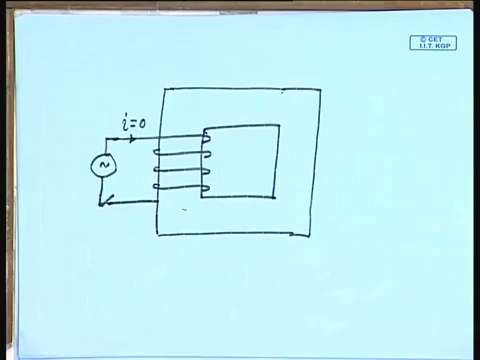 © CET
I.I.T. KGP
i=0
~